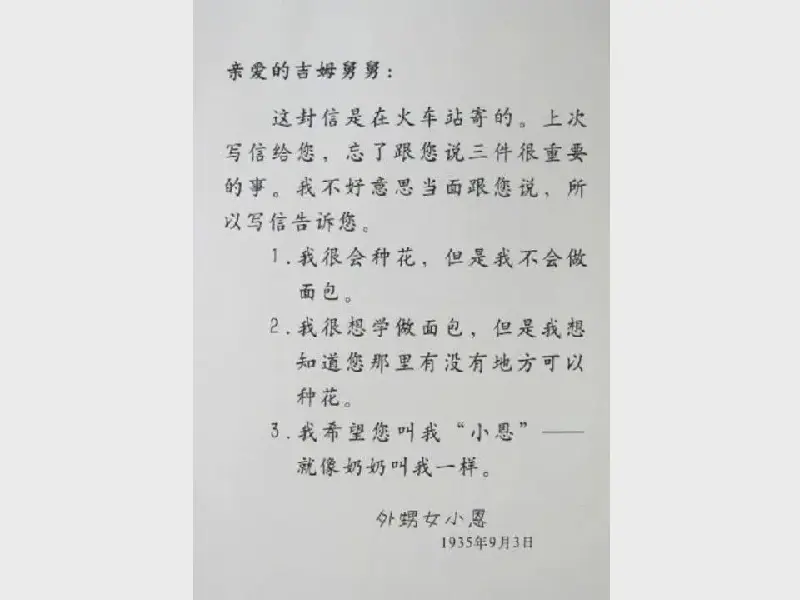 亲爱的吉姆舅舅：
这封信是在火车站寄的。上次
写信给您，忘了跟您说三件很重要
的事。我不好意思当面跟您说，所
以写信告诉您。
1.我很会种花，但是我不会做
面包。
2.我很想学做面包，但是我想
知道您那里有没有地方可以
种花。
3.我希望您叫我“小恩”——
就像奶奶叫我一样。
外甥女小恩
1935年9月3日